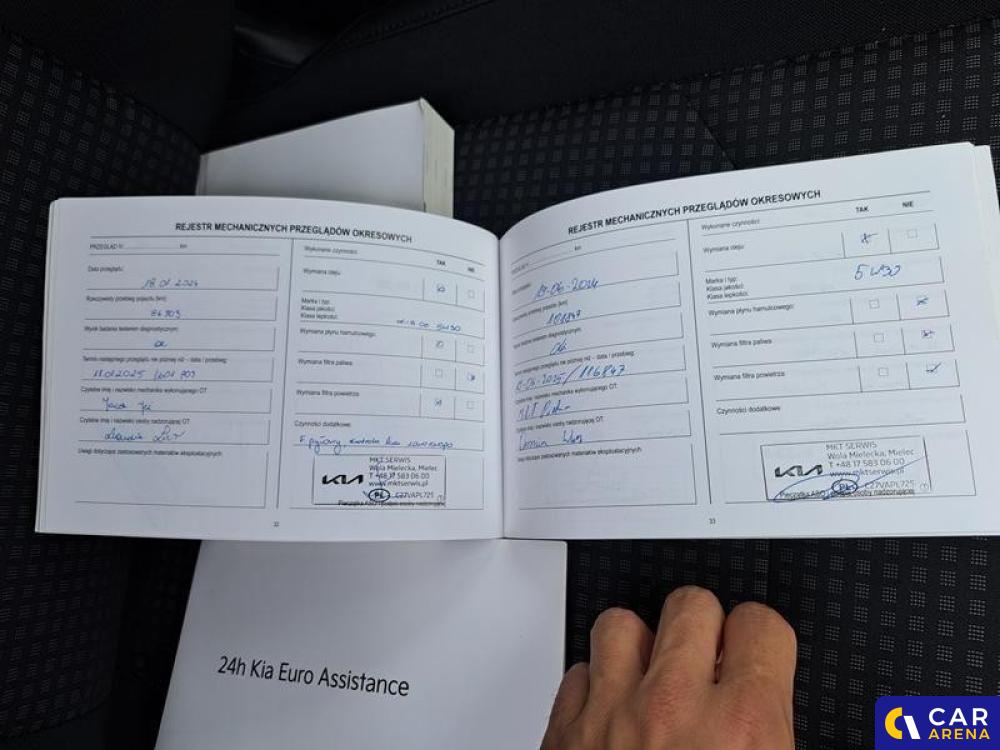 REJESTR MECHANICZNYCH PRZEGLĄDÓW OKRESOWYCH
PRZEGLĄD V: km
Data przeglądu:
18.01.2024
Rzeczywisty przebieg pojazdu (km):
86703
Wynik badania testerem diagnostycznym:
ok
Termin następnego przeglądu nie później niż - data / przebieg:
Czytelne imię i nazwisko mechanika wykonującego OT:
Czytelne imię i nazwisko osoby nadzorującej OT:
Uwagi dotyczące zastosowanych materiałów eksploatacyjnych:
Wykonane czynności:
TAK NIE
Wymiana oleju:
Marka i typ:
Klasa jakości:
Klasa lepkości:
5W30
Wymiana płynu hamulcowego:
Wymiana filtra paliwa:
Wymiana filtra powietrza:
Czynności dodatkowe:
F. pyłkowy, kontrola
KIA
MKT SERWIS
Wola Mielecka, Mielec
T +48 17 583 06 00
www.mktserwis.pl
PL C27VAPL725
Pieczątka ASO i podpis osoby nadzorującej
32
REJESTR MECHANICZNYCH PRZEGLĄDÓW OKRESOWYCH
km
19-06-2024
101847
Wynik badania testerem diagnostycznym:
ok
Termin następnego przeglądu nie później niż - data / przebieg:
-06-2025 / 116847
Czytelne imię i nazwisko mechanika wykonującego OT:
Czytelne imię i nazwisko osoby nadzorującej OT:
Uwagi dotyczące zastosowanych materiałów eksploatacyjnych:
Wykonane czynności:
TAK NIE
Wymiana oleju:
Marka i typ:
Klasa jakości:
Klasa lepkości:
5W30
Wymiana płynu hamulcowego:
Wymiana filtra paliwa:
Wymiana filtra powietrza:
Czynności dodatkowe:
KIA
MKT SERWIS
Wola Mielecka, Mielec
T +48 17 583 06 00
www.mktserwis.pl
PL C27VAPL725
Pieczątka ASO i podpis osoby nadzorującej
33
24h Kia Euro Assistance
CAR
ARENA